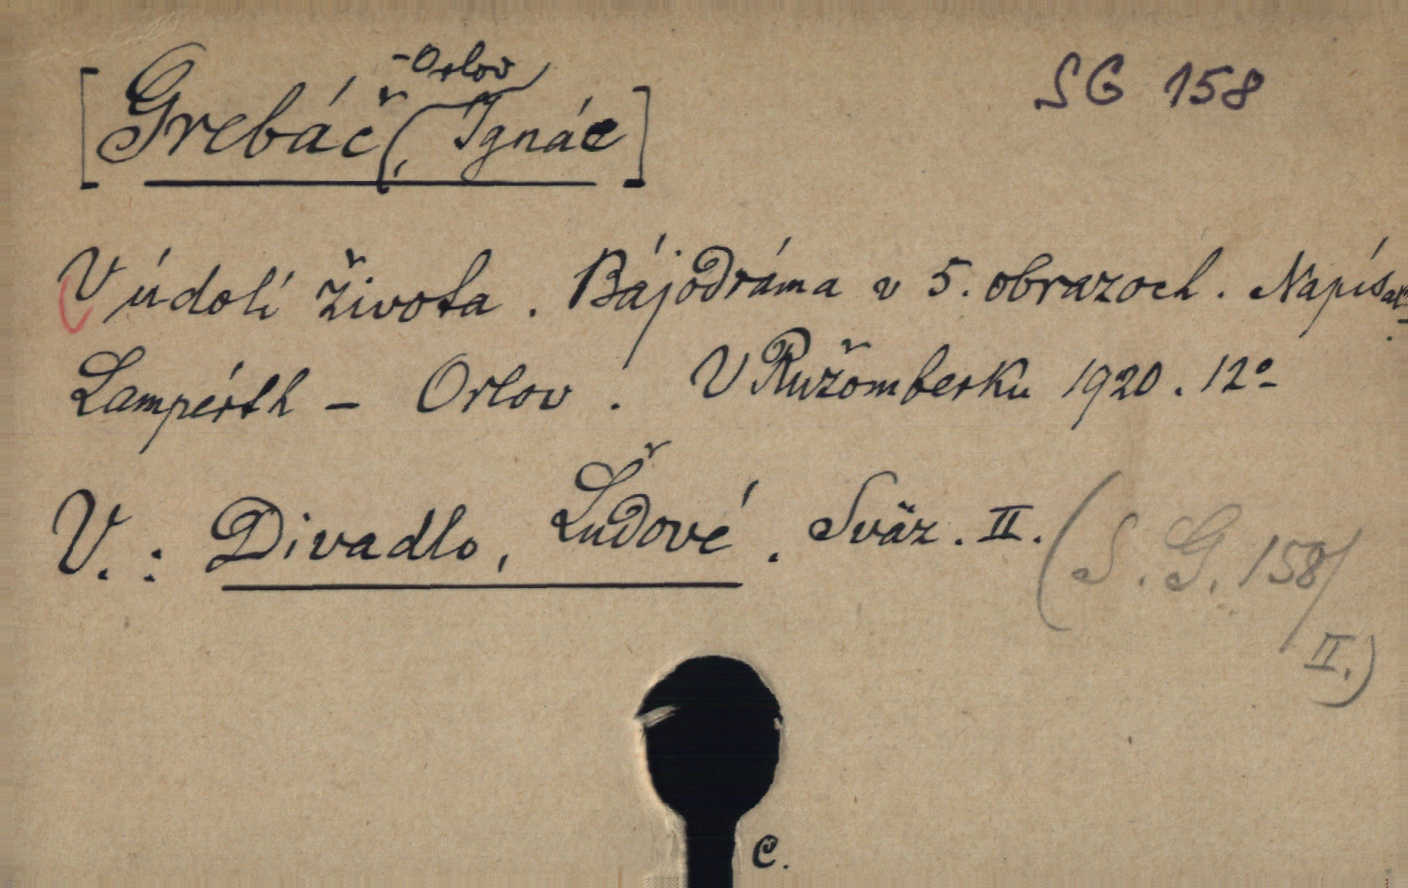 [Grebáč-Orlov, Ignác]
SG 158
V údolí života. Bájodráma v 5. obrazoch. Napísal
Lampérth - Orlov. V Ružomberku 1920. 12°
V.: Divadlo, Ľudové. Sväz. II. (S. G. 158/
II.)
C.